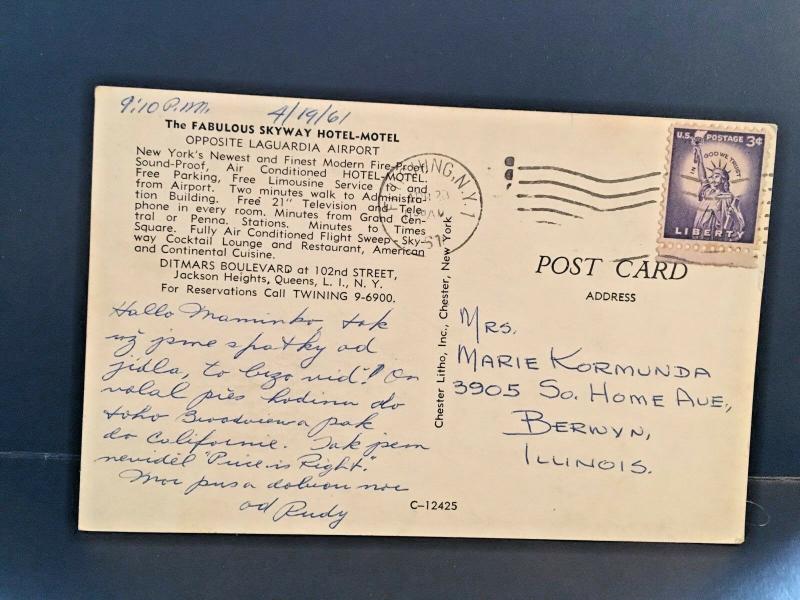 9:10 P.M. 4/19/61
The FABULOUS SKYWAY HOTEL-MOTEL
OPPOSITE LAGUARDIA AIRPORT
New York's Newest and Finest Modern Fire-Proof,
Sound-Proof, Air Conditioned HOTEL-MOTEL.
Free Parking, Free Limousine Service to and
from Airport. Two minutes walk to Administra-
tion Building. Free 21" Television and Tele-
phone in every room. Minutes from Grand Cen-
tral or Penna. Stations. Minutes to Times
Square. Fully Air Conditioned Flight Sweep - Sky-
way Cocktail Lounge and Restaurant, American
and Continental Cuisine.
DITMARS BOULEVARD at 102nd STREET,
Jackson Heights, Queens, L. I., N. Y.
For Reservations Call TWINING 9-6900.
Hallo Maminko, tak
už jsme spátky od
jídla, to
volal přes hodinu do
toho pak
do Californie. Tak jsem
neviděl "Price is Right."
Moc pus a dobrou noc
od Rudy
C-12425
Chester Litho, Inc., Chester, New York
N.Y. 1
U.S. POSTAGE 3¢
IN GOD WE TRUST
LIBERTY
POST CARD
ADDRESS
MRS.
MARIE KORMUNDA
3905 SO. HOME AVE.,
BERWYN,
ILLINOIS.